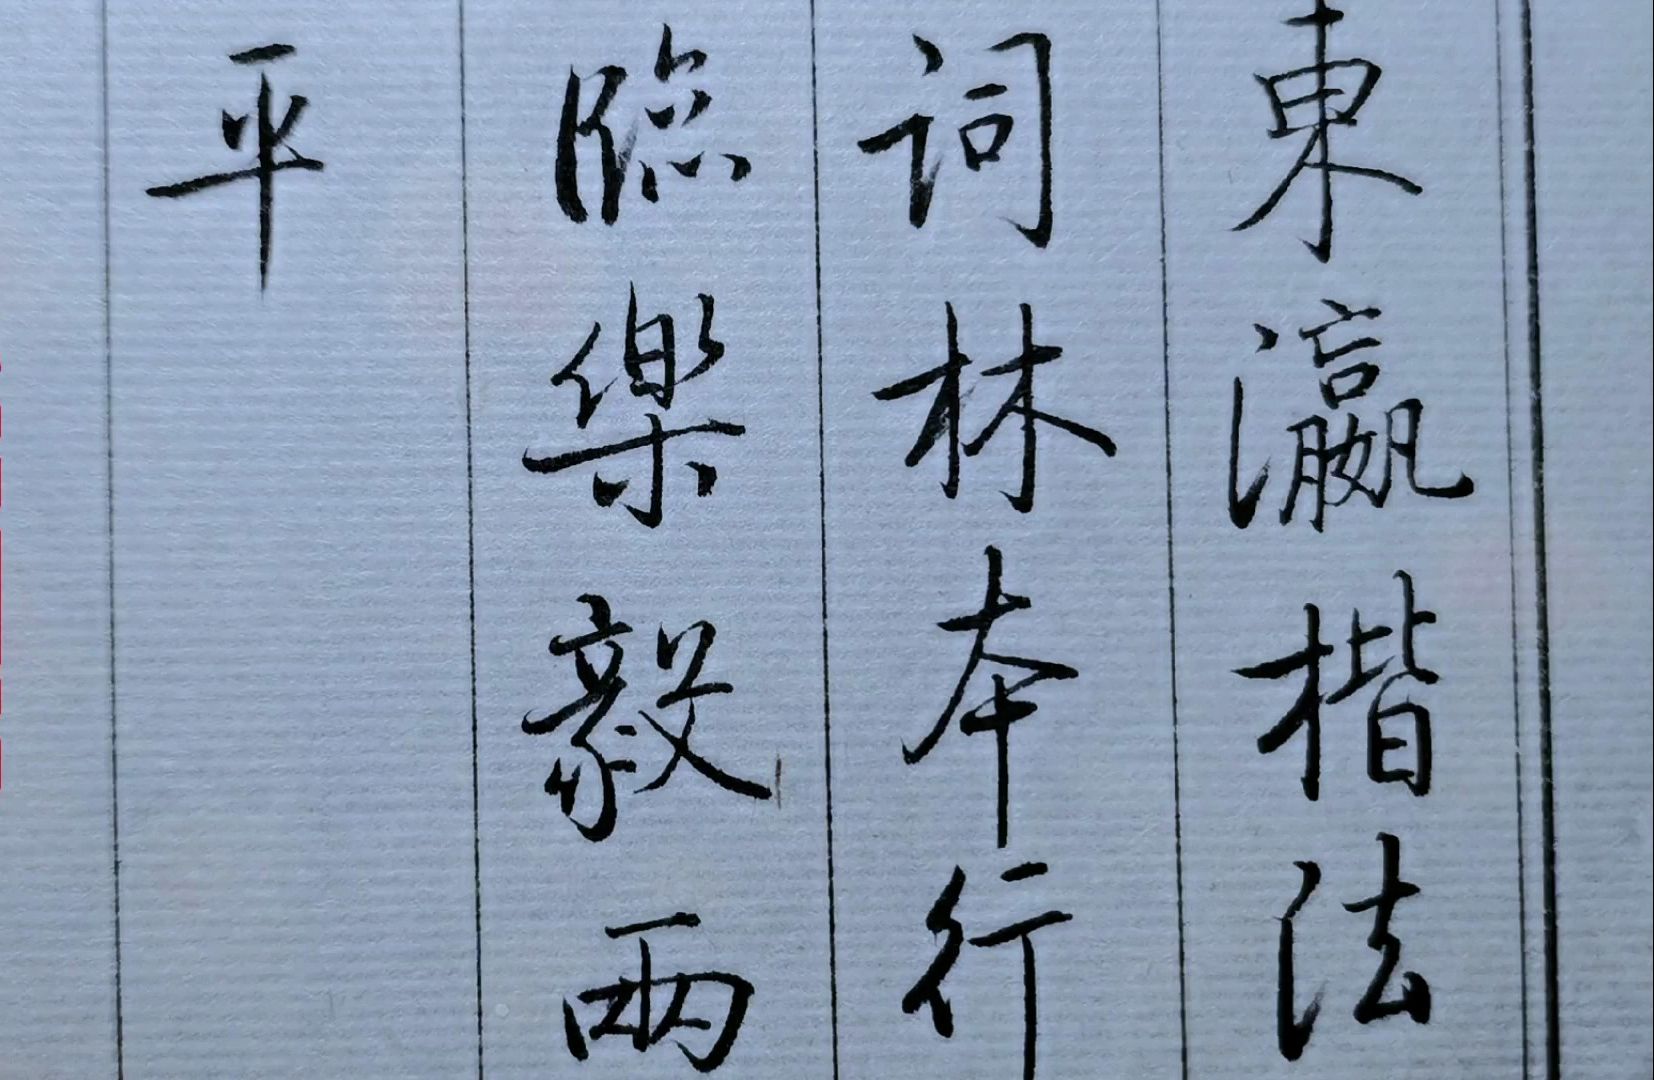 東瀛楷法
詞林本行
臨樂毅兩
平